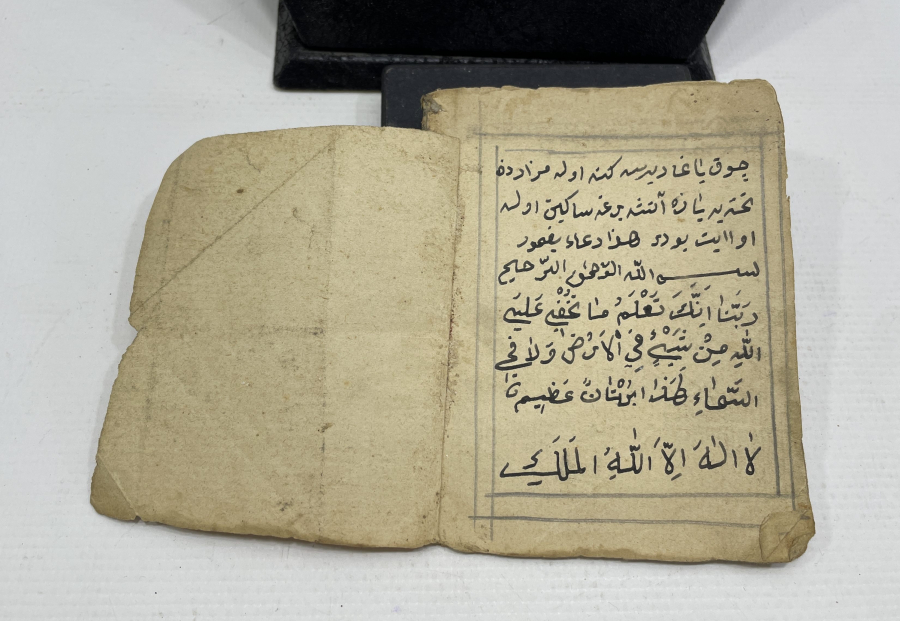 چوق ياغاديرسه كته اوله مزارده
تحتريه ياده آتشه برغه ساكين اوله
اوايت بودر هذا دعاء يغمور
بسم الله الرحمن الرحيم
رَبَّنَا اِنَّكَ تَعْلَمُ مَا نُخْفِي عَلَيَ
اللهِ مِنْ شَيْءٍ فِي الْاَرْضِ وَلَا فِي
السَّمَاءِ هٰذَا بُهْتَانٌ عَظِيمٌ
لَا اِلٰهَ اِلَّا اللهُ الْمَلِكُ